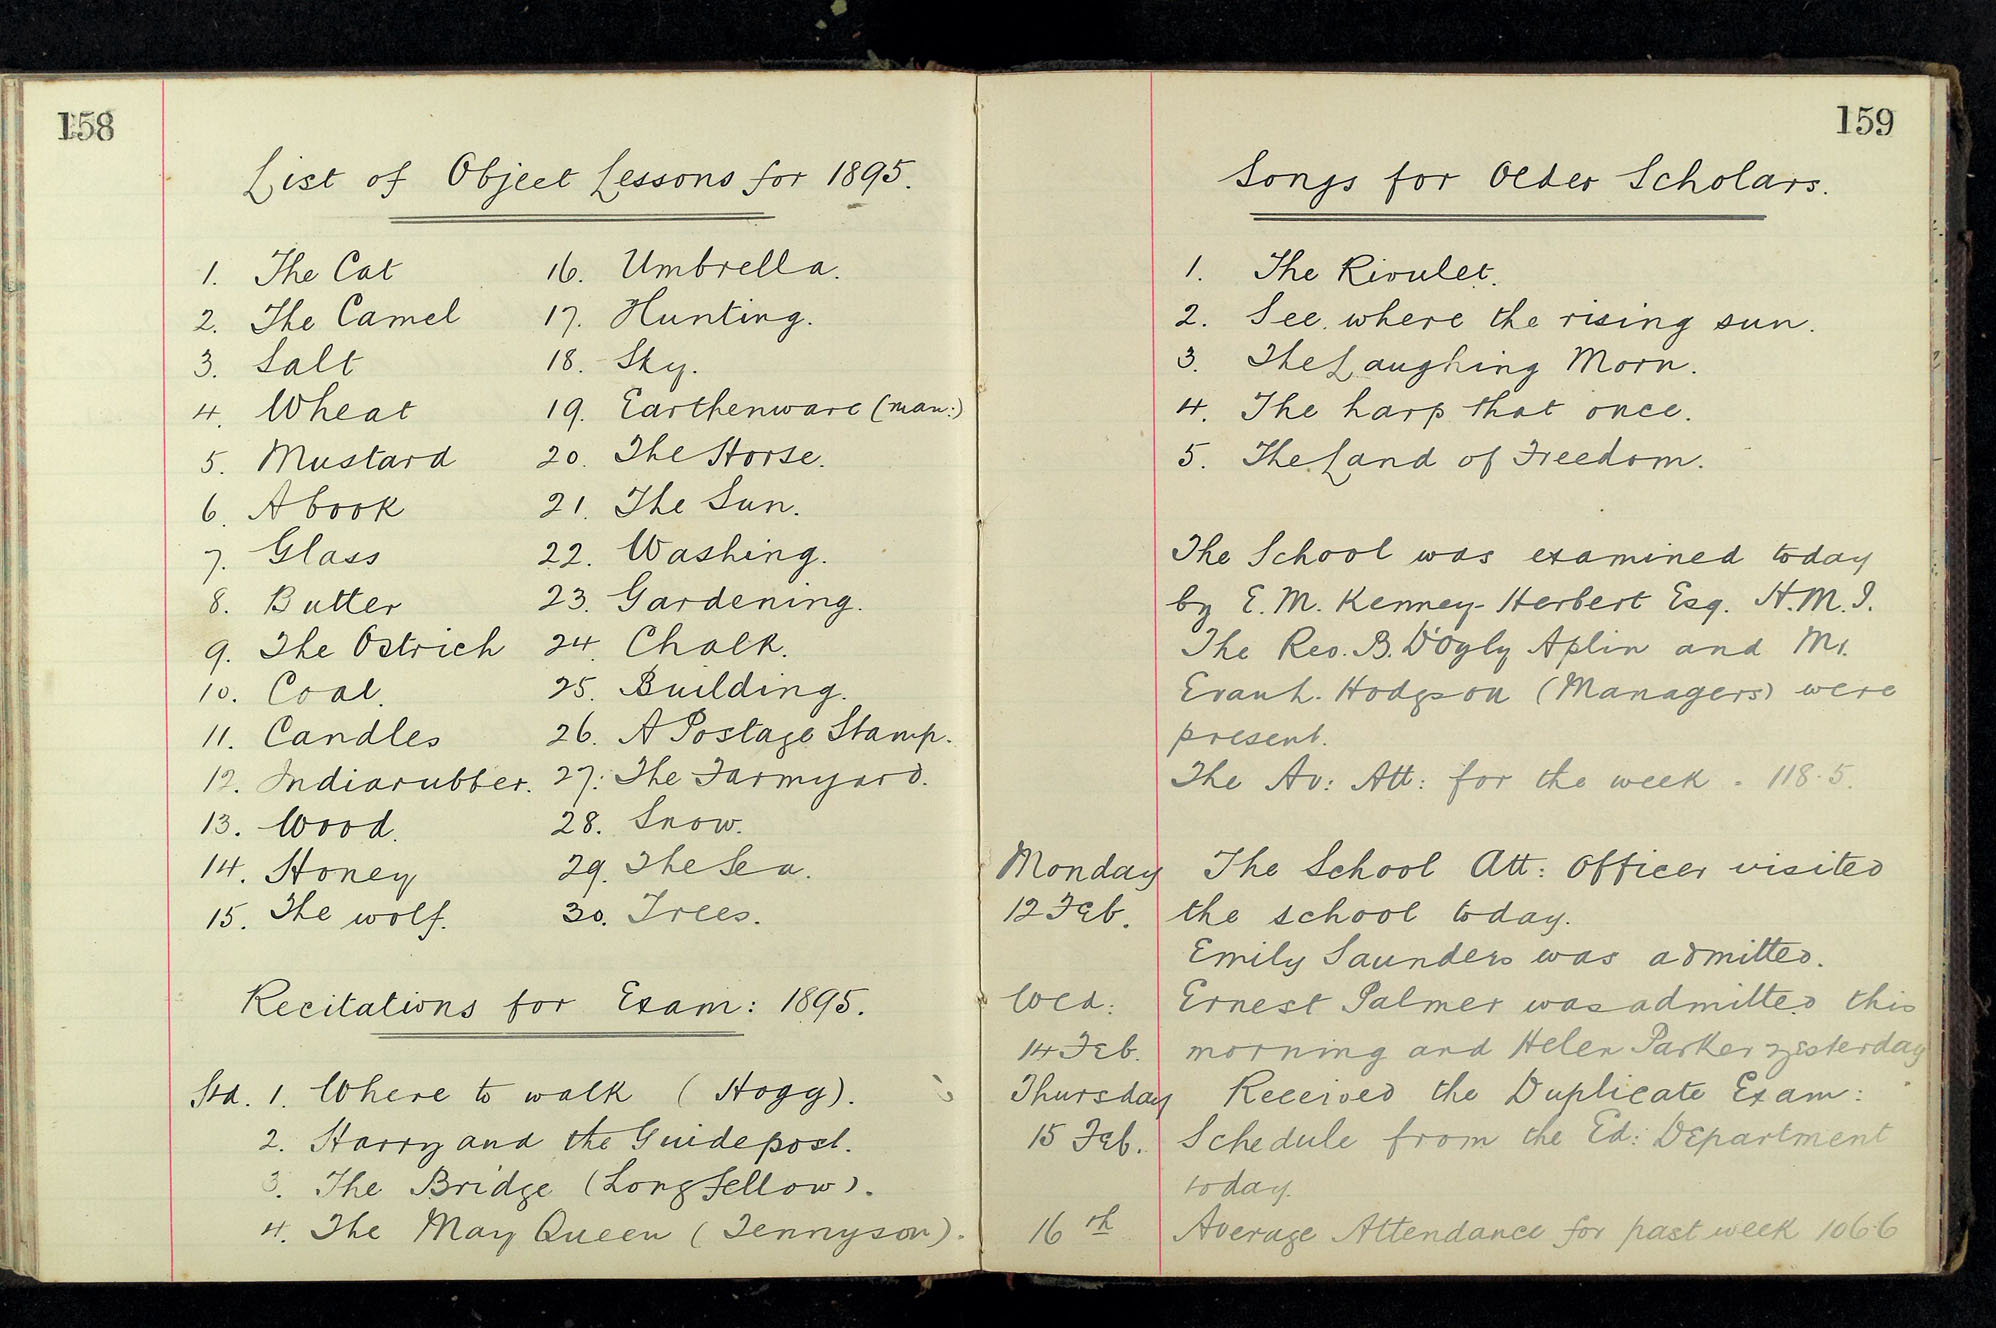 158
List of Object Lessons for 1895.
1. The Cat
2. The Camel
3. Salt
4. Wheat
5. Mustard
6. A book
7. Glass
8. Butter
9. The Ostrich
10. Coal.
11. Candles
12. Indiarubber.
13. Wood.
14. Honey
15. The wolf.
16. Umbrella.
17. Hunting.
18. Sky.
19. Earthenware (man:)
20. The Horse.
21. The Sun.
22. Washing.
23. Gardening.
24. Chalk.
25. Building.
26. A Postage Stamp.
27. The Farmyard.
28. Snow.
29. The Sea.
30. Trees.
Recitations for Exam: 1895.
Std. 1. Where to walk (Hogg).
2. Harry and the Guidepost.
3. The Bridge (Longfellow).
4. The May Queen (Tennyson).
159
Songs for Older Scholars.
1. The Rivulet.
2. See where the rising sun.
3. The Laughing Morn.
4. The harp that once.
5. The Land of Freedom.
The School was examined today
by E. M. Kenney-Herbert Esq. H.M.I.
The Rev. B. D'Oyly Aplin and Mr.
Hodgson (Managers) were
present.
The Av: Att: for the week - 118.5.
Monday The School Att: Officer visited
12 Feb. the school today.
Emily Saunders was admitted.
Wed: Ernest Palmer was admitted this
14 Feb. morning and Helen Parker yesterday
Thursday Received the Duplicate Exam:
15 Feb. Schedule from the Ed: Department
today.
16th Average Attendance for past week 106.6